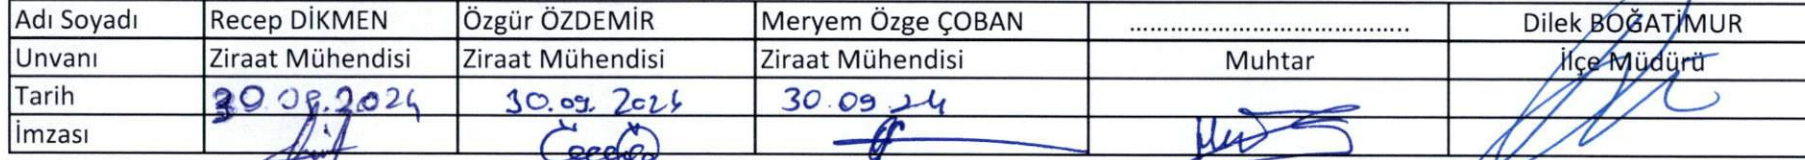 Adı Soyadı Recep DİKMEN Özgür ÖZDEMİR Meryem Özge ÇOBAN ........................................ Dilek BOĞATİMUR
Unvanı Ziraat Mühendisi Ziraat Mühendisi Ziraat Mühendisi Muhtar İlçe Müdürü
Tarih 30.09.2024 30.09.2024 30.09.24
İmzası